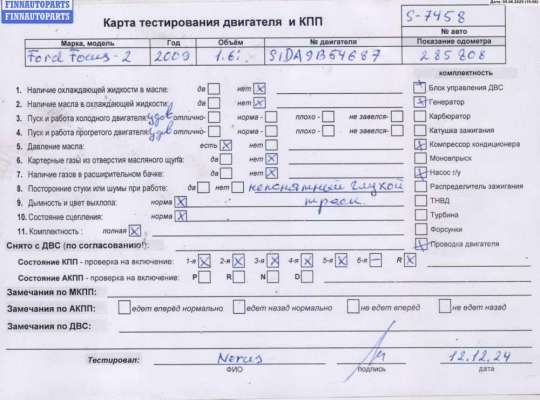 FINNAUTOPARTS
FINNAUTOPARTS
Карта тестирования двигателя и КПП
S-7458
№ авто
Марка, модель Год Объём № двигателя Показание одометра
Ford Focus-2 2009 1.6i SIDA9B54687 285808
комплектность
1. Наличие охлаждающей жидкости в масле: да нет
2. Наличие масла в охлаждающей жидкости: да нет
3. Пуск и работа холодного двигателя: удов отлично- норма - плохо - не завелся-
4. Пуск и работа прогретого двигателя: удов отлично- норма - плохо - не завелся-
5. Давление масла: есть нет
6. Картерные газы из отверстия масляного щупа: да нет
7. Наличие газов в расширительном бачке: да нет
8. Посторонние стуки или шумы при работе: да нет непонятный глухой
треск
9. Дымность и цвет выхлопа: норма
10. Состояние сцепления: норма
11. Комплектность : полная
Блок управления ДВС
Генератор
Карбюратор
Катушка зажигания
Компрессор кондиционера
Моновпрыск
Насос г/у
Распределитель зажигания
ТНВД
Турбина
Форсунки
Проводка двигателя
Снято с ДВС (по согласованию):
Состояние КПП - проверка на включение: 1-я 2-я 3-я 4-я 5-я 6-я R
Состояние АКПП - проверка на включение: P R N D
Замечания по МКПП:
Замечания по АКПП: едет вперёд нормально едет назад нормально не едет вперёд не едет назад
Замечания по ДВС:
Тестировал: 12.12.24
ФИО подпись дата